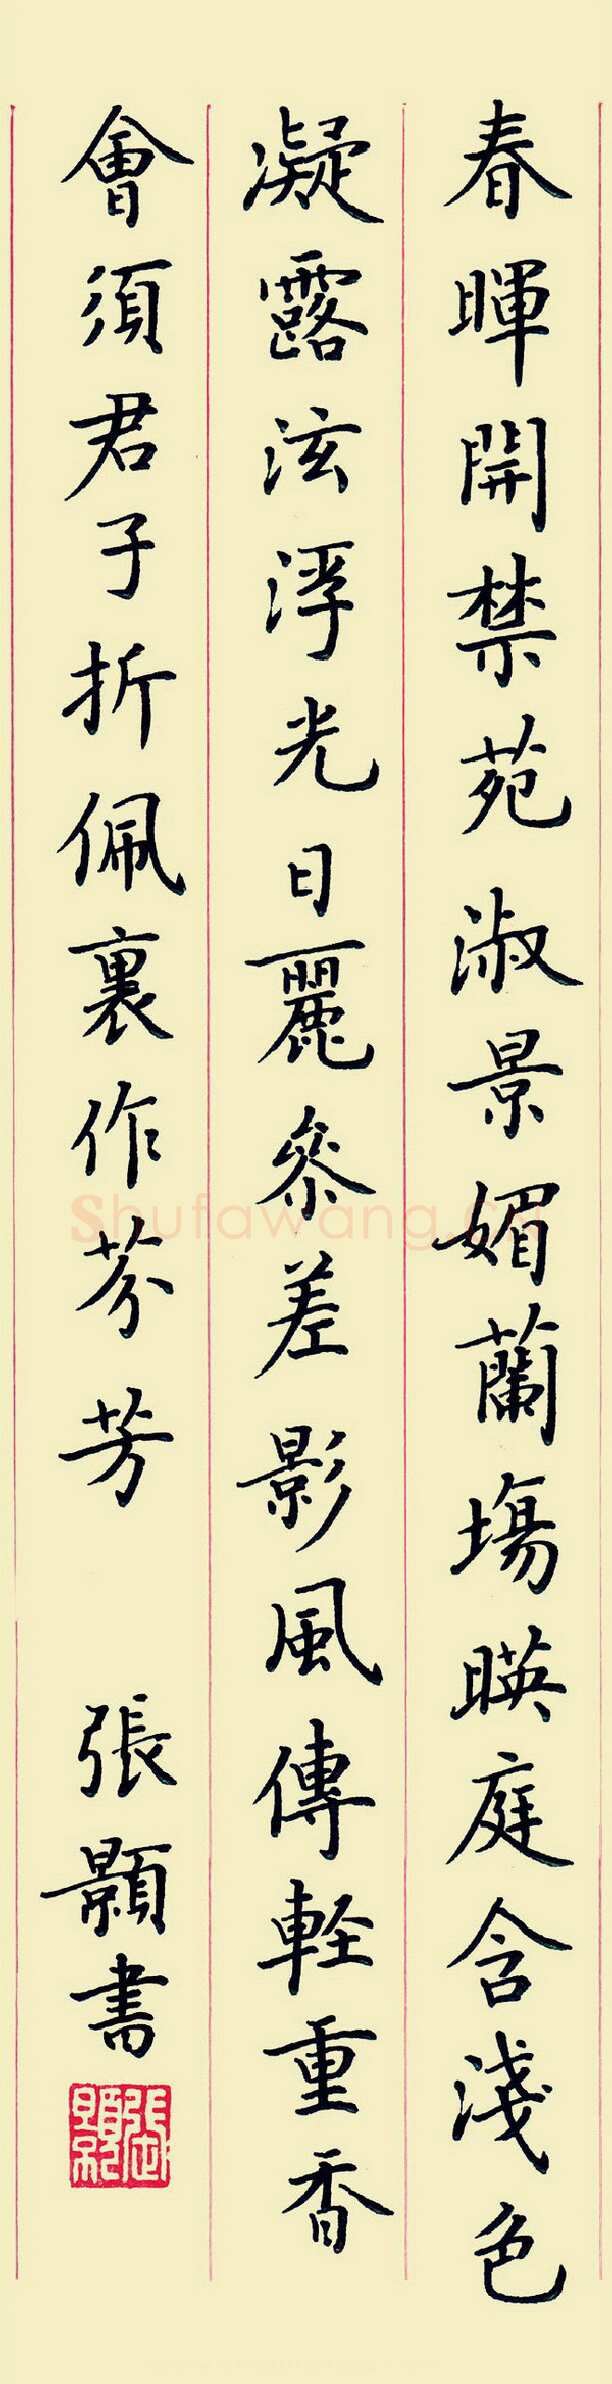 春暉開禁苑淑景媚蘭塲暎庭含淺色
凝露泫浮光日麗參差影風傳輕重香
會須君子折佩裏作芬芳
張顥書
Shufawang.cn